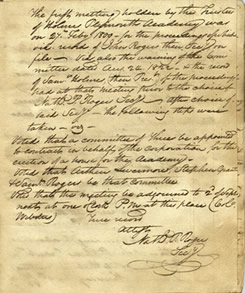 The first meeting holden by the Trustees
of Holmes Plymouth Academy was
on 27. Feby 1809 - for the proceedings of which
vid. record of John Rogers then Secy on
file - Vid. also the warning of the com-
mittee dated Dec. 1808 - & the record
of Saml Holmes then Secy of the proceedings
had at that meeting prior to the choice of
N. P. Rogers Secy - after choice of
said Secy - the following steps were
taken - viz -
Voted that a committee of three be appointed
to contract in behalf of the corporation for the
erection of a house for the Academy -
Voted that Arthur Livermore Stephen Grant
& Saml Rogers be that Committee
Voted that this meeting be adjourned to 2d
next at one oclk P.M at this place (Col.
Websters)
true record
attest
N. P. Rogers
Secy